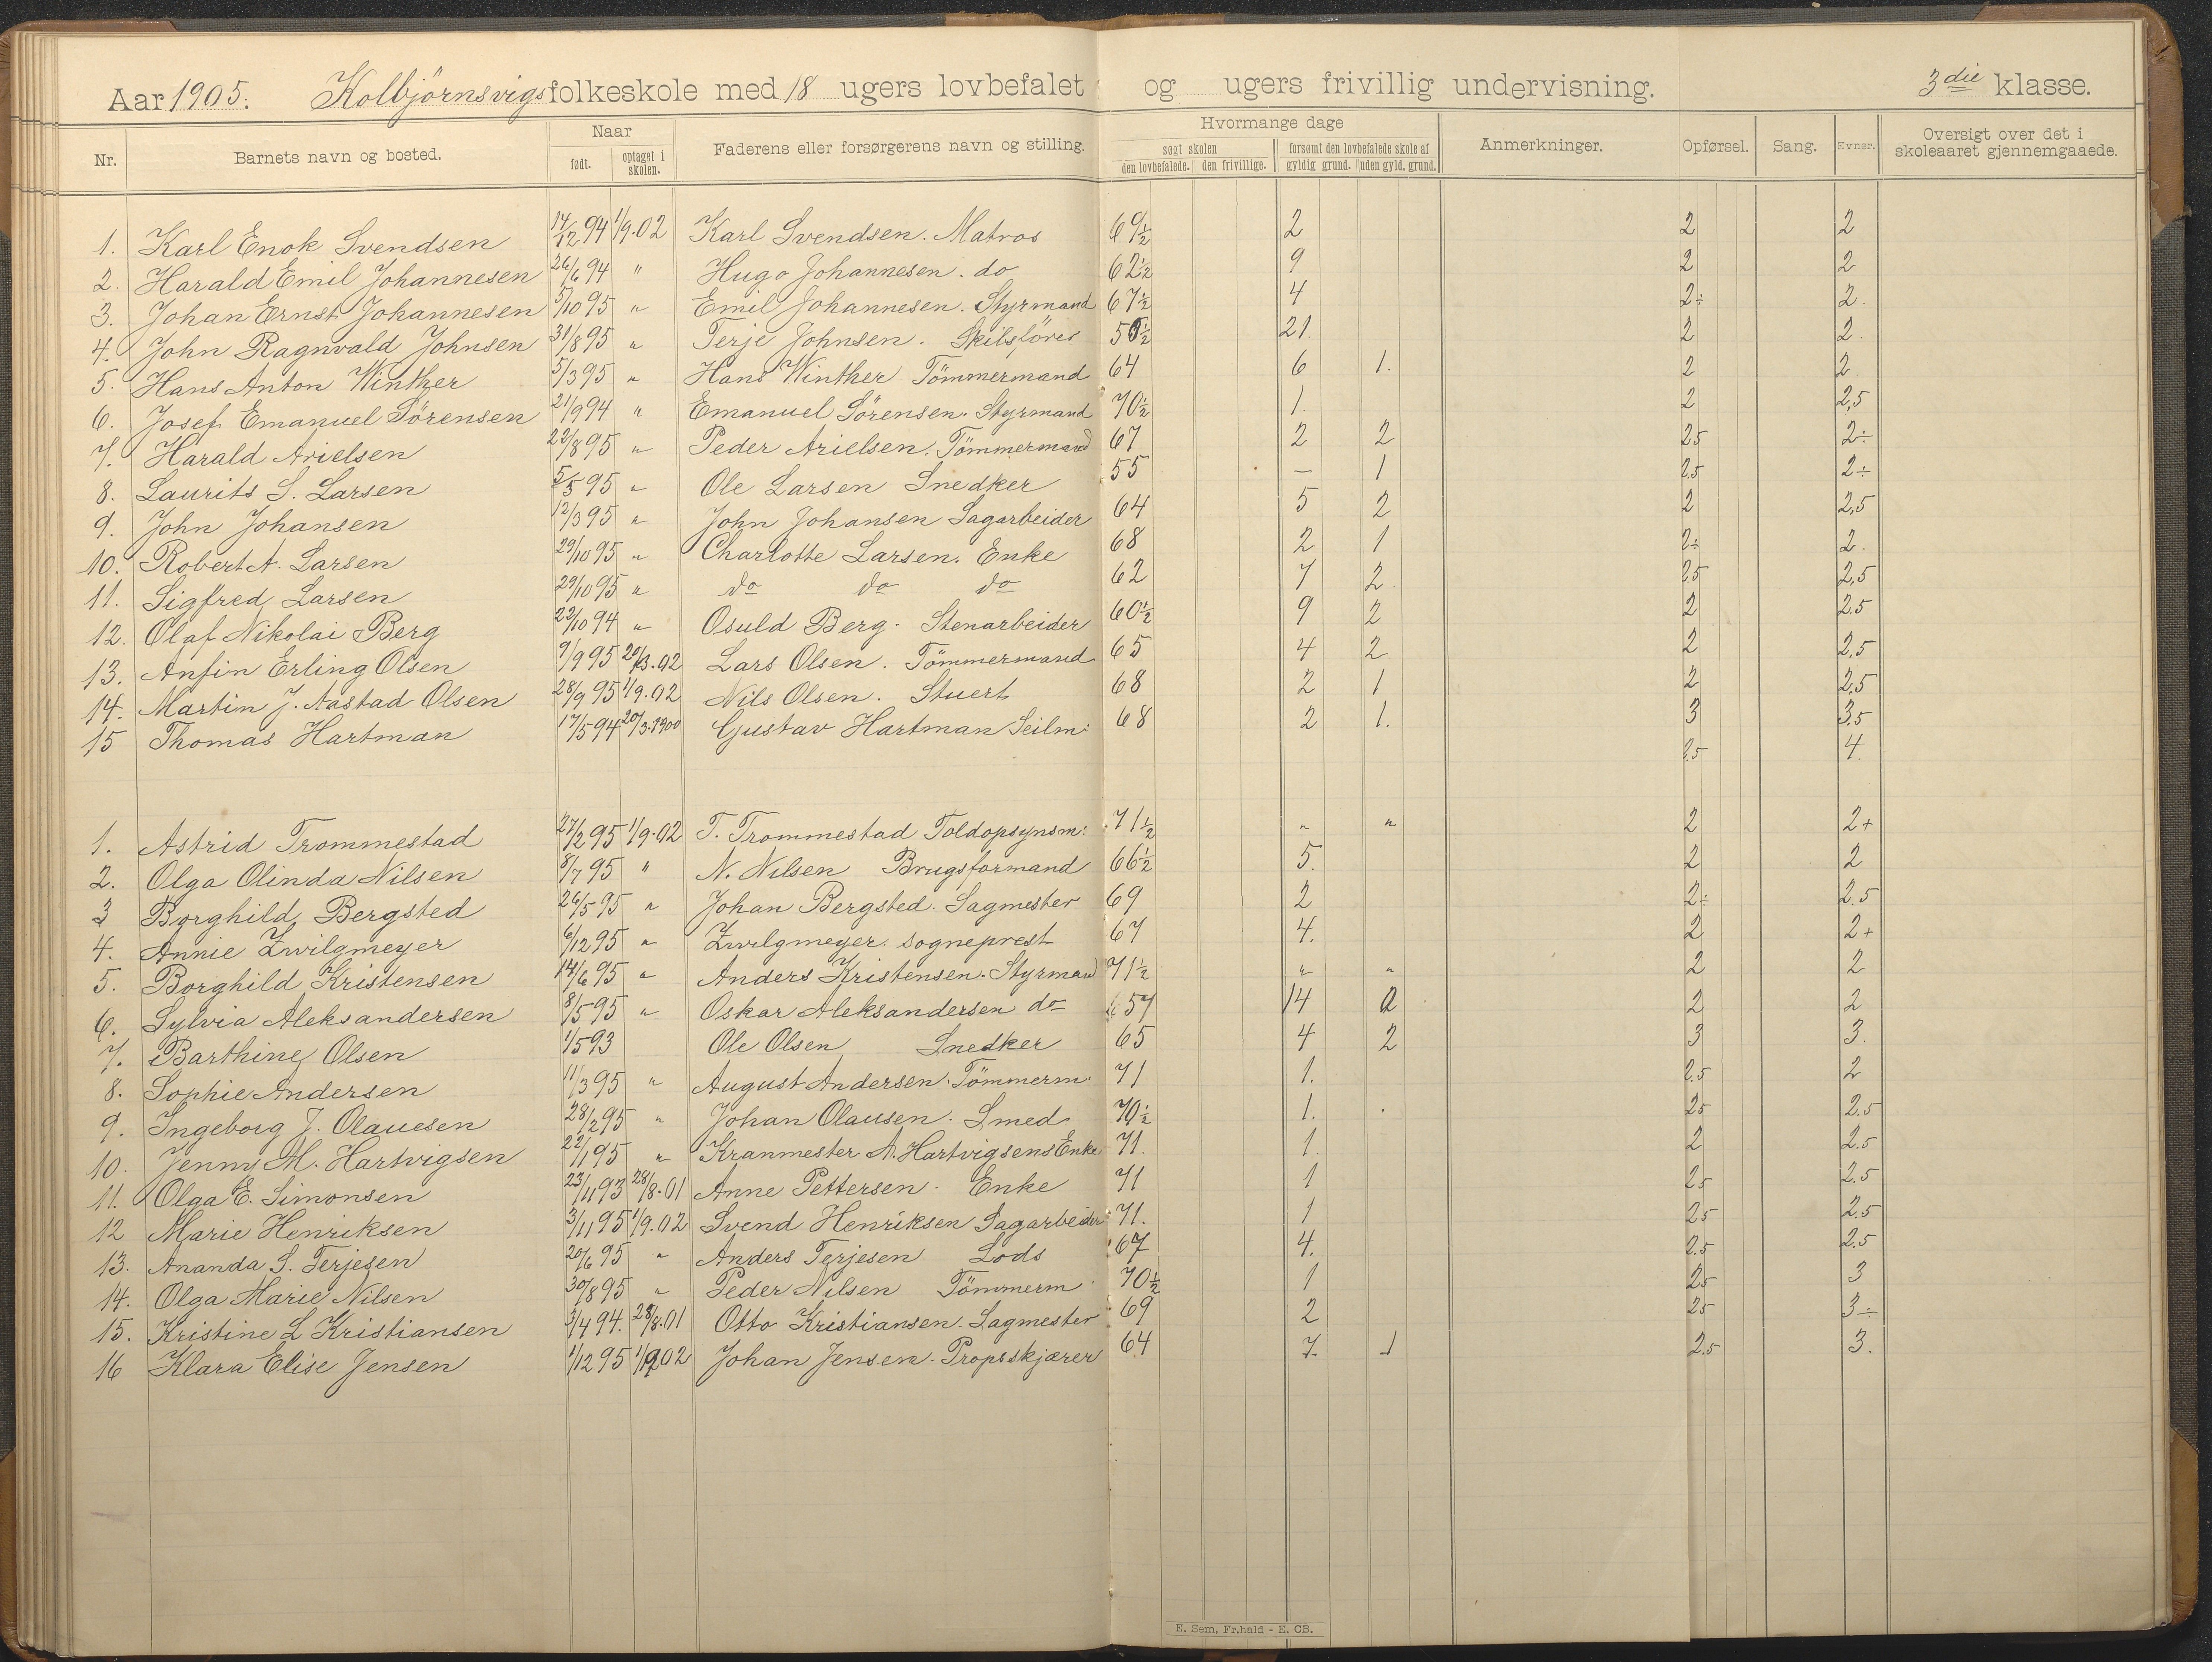 Aar 1905. Kolbjörnsvigs folkeskole med 18 ugers lovbefalet og ugers frivillig undervisning. 3die klasse.
Nr. Barnets navn og bosted. Naar født. optaget i skolen. Faderens eller forsørgerens navn og stilling. Hvormange dage søgt skolen den lovbefalede. den frivillige. forsømt den lovbefalede skole af gyldig grund. uden gyld. grund. Anmerkninger. Opførsel. Sang. Evner. Oversigt over det i skoleaaret gjennemgaaede.
1. Karl Enok Svendsen 14/12 94 1/9.02 Karl Svendsen. Matros 69½ 2 2 2
2. Harald Emil Johannesen 26/6 94 " Hugo Johannesen. do 62½ 9 2 2
3. Johan Ernst Johannesen 5/10 95 " Emil Johannesen. Styrmand 67½ 4 2÷ 2.
4. John Ragnvald Johnsen 31/8 95 " Terje Johnsen. Skibsförer 21. 2 2.
5. Hans Anton Winther 5/3 95 " Hans Winther Tömmermand 64 6 1. 2 2.
6. Josef Emanuel Sörensen 21/9 94 " Emanuel Sörensen. Styrmand 70½ 1. 2 2,5
7. Harald Arielsen 22/8 95 " Peder Arielsen. Tömmermand 67 2 2 2.5 2÷
8. Laurits S. Larsen 5/5 95 " Ole Larsen Snedker 55 — 1 2.5 2÷
9. John Johansen 12/3 95 " John Johansen Sagarbeider 64 5 2 2 2,5
10. Robert A. Larsen 29/10 95 " Charlotte Larsen. Enke 68 2 1 2÷ 2.
11. Sigfred Larsen 29/10 95 " do do do 62 7 2 2.5 2,5
12. Olaf Nikolai Berg 22/10 94 " Osuld Berg. Stenarbeider 60½ 9 2 2 2.5
13. Anfin Erling Olsen 9/9 95 20/3.02 Lars Olsen. Tömmermand 65 4 2 2 2,5
14. Martin J. Aastad Olsen 28/9 95 1/9.02 Nils Olsen. Stuert 68 2 1 2 2,5
15 Thomas Hartman 17/5 94 20/3.1900 Gustav Hartman Seilm: 68 2 1. 3 3.5
2.5 4.
1. Astrid Trommestad 27/2 95 1/9.02 T. Trommestad Toldopsynsm: 71½ " " 2 2+
2. Olga Olinda Nilsen 8/7 95 " N. Nilsen Brugsformand 66½ 5. 2 2
3 Borghild Bergsted 26/5 95 " Johan Bergsted. Sagmester 69 2 2÷ 2.5
4. Annie Zwilgmeyer 6/12 95 " Zwilgmeyer. sogneprest 67 4. 2 2+
5. Borghild Kristensen 14/6 95 " Anders Kristensen. Styrmand 71½ " " 2 2
6. Sylvia Aleksandersen 8/5 95 " Oskar Aleksandersen do 57 14 2 2
7. Barthine Olsen 1/5 93 Ole Olsen Snedker 65 4 2 3 3.
8. Sophie Andersen 11/3 95 " August Andersen. Tömmerm. 71 1. 2.5 2
9. Ingeborg J. Olauesen 28/2 95 " Johan Olausen. Smed 70½ 1. 2.5 2.5
10. Jenny M. Hartvigsen 22/1 95 " Kranmester A. Hartvigsens Enke 71. 1. 2 2.5
11. Olga E. Simonsen 23/11 93 28/8.01 Anne Pettersen. Enke 71 1 2.5 2.5
12 Marie Henriksen 3/11 95 1/9.02 Svend Henriksen Sagarbeider 71. 1 2.5 2.5
13. Ananda S. Terjesen 20/6 95 " Anders Terjesen Lods 67 4. 2.5 2.5
14. Olga Marie Nilsen 30/8 95 " Peder Nilsen Tömmerm. 70½ 1 2.5 3
15. Kristine L Kristiansen 3/4 94. 28/8.01 Otto Kristiansen. Sagmester 69 2 2.5 3÷
16 Klara Elise Jensen 1/12 95 Johan Jensen. Propsskjærer 64 7. 1 2.5 3.
E. Sem, Fr.hald - E. CB.